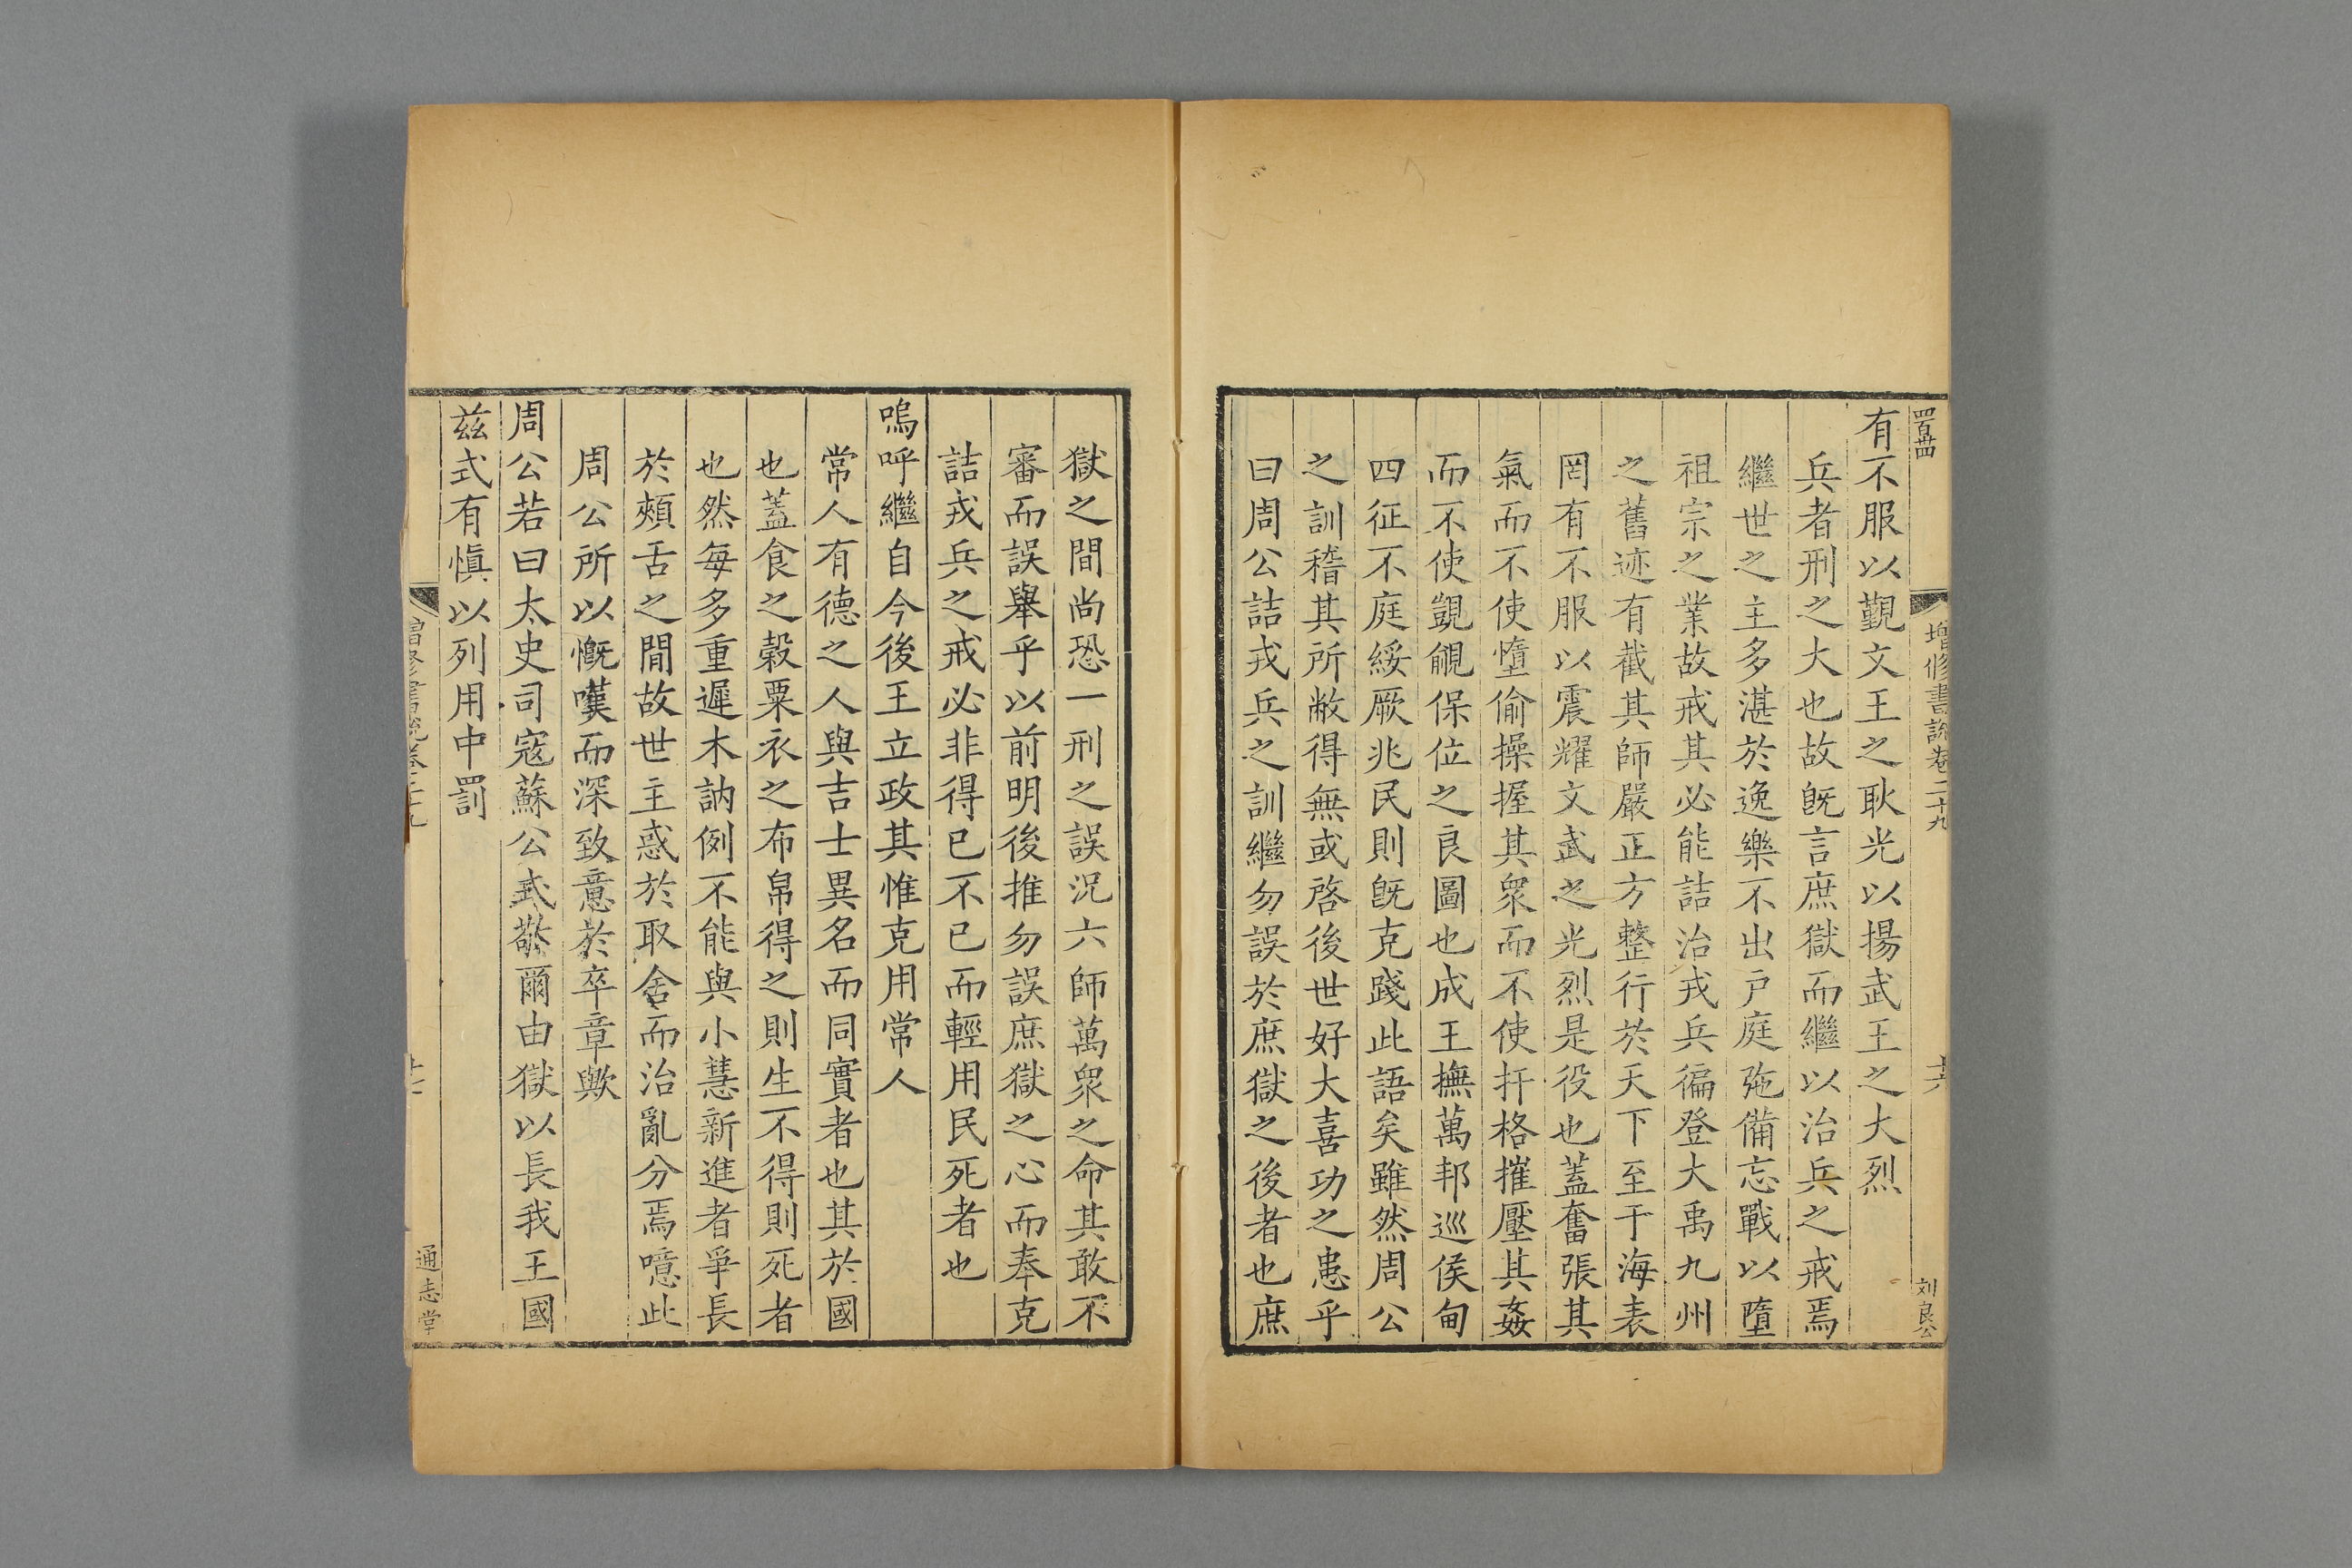 增修書說卷二十九
十六
刘良公
有不服以覲文王之耿光以揚武王之大烈
兵者刑之大也故旣言庶獄而繼以治兵之戒焉
繼世之主多湛於逸樂不出戶庭弛備忘戰以墮
祖宗之業故戒其必能詰治戎兵徧登大禹九州
之舊迹有截其師嚴正方整行於天下至于海表
罔有不服以震耀文武之光烈是役也蓋奮張其
氣而不使墮偷操握其衆而不使扞格摧壓其姦
而不使覬覦保位之良圖也成王撫萬邦巡侯甸
四征不庭綏厥兆民則旣克踐此語矣雖然周公
之訓稽其所敝得無或啓後世好大喜功之患乎
曰周公詰戎兵之訓繼勿誤於庶獄之後者也庶
獄之間尚恐一刑之誤況六師萬衆之命其敢不
審而誤舉乎以前明後推勿誤庶獄之心而奉克
詰戎兵之戒必非得已不已而輕用民死者也
嗚呼繼自今後王立政其惟克用常人
常人有德之人與吉士異名而同實者也其於國
也蓋食之榖粟衣之布帛得之則生不得則死者
也然每多重遲木訥例不能與小慧新進者爭長
於頰舌之間故世主惑於取舍而治亂分焉噫此
周公所以慨嘆而深致意於卒章歟
周公若曰太史司寇蘇公式敬爾由獄以長我王國
茲式有愼以列用中罰
通志堂